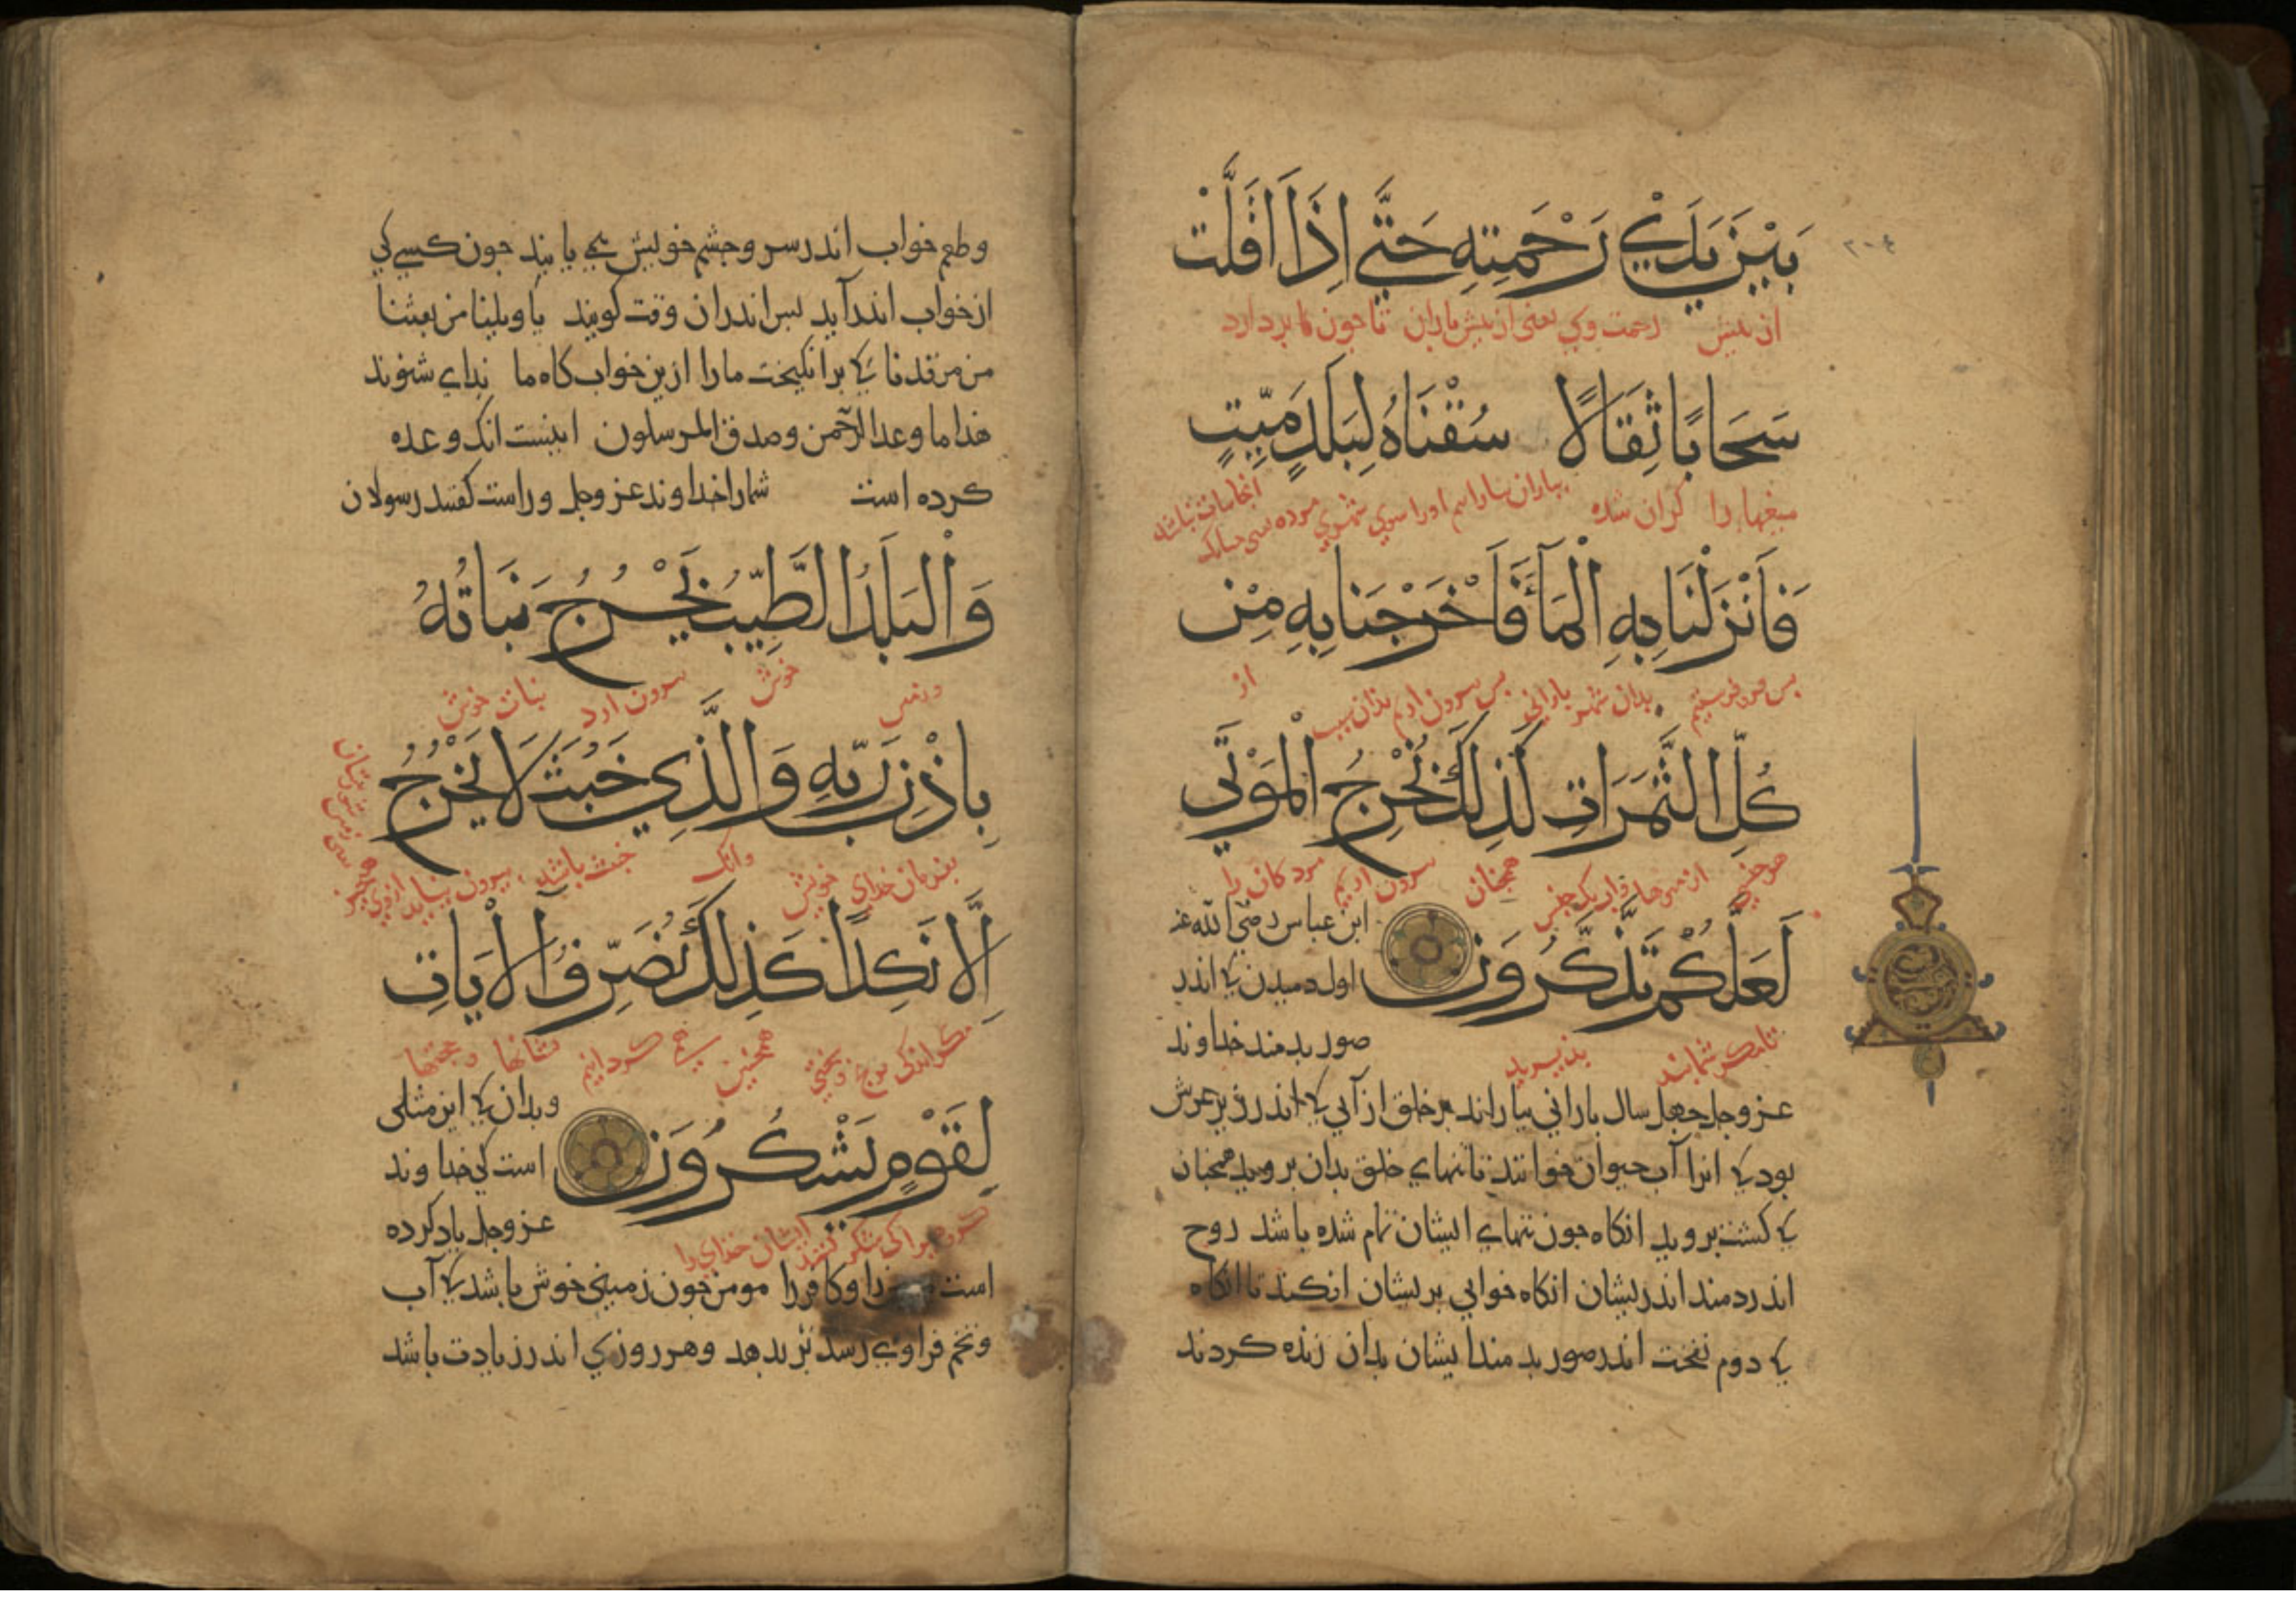 بَيْنَ يَدَيْ رَحْمَتِهِ حَتَّى اِذَا اَقَلَّتْ
٢٠٤
از بیش رحمت وی یعنی از بیش باران تا جون کا بردارد
سَحَابًا ثِقَالًا سُقْنَاهُ لِبَلَدٍ مَيِّتٍ
میغها را کران شده
فَاَنْزَلْنَا بِهِ الْمَآءَ فَاَخْرَجْنَا بِهِ مِنْ
بس فرو فرستیم بدان شهر بارانی بس بیرون اریم بذان سبب از
كُلِّ الثَّمَرَاتِ كَذٰلِكَ نُخْرِجُ الْمَوْتَى
از میوها همجنان بیرون اریم مردکان را
لَعَلَّكُمْ تَذَكَّرُونَ
تا مکر شما بند بذیرید
ابن عباس رضی الله عنه
اول دمیدن کی اندر
صور بدمند خداوند
عزوجل جهل سال بارانی بباراند بر خلق از آبی کی اندر زیر عرش
بود کی انرا آب حیوان خوانند تا تنهای خلق بدان بروید همجنان
کی کشت بروید انکاه جون تنهاء ایشان تمام شده باشد روح
اندر دمند اندریشان انکاه خوابی بریشان افکند تا انکاه
کی دوم نفخت اندر صور بدمند ایشان بدان زنده کردند
وطعم خواب اندر سر و جشم خویش می یابند جون کسی کی
از خواب اندر آید بس اندران وقت کویند یا ویلنا من بعثنا
من مرقدنا کی برانکیخت مارا ازین خواب کاه ما نداء شنوند
هذا ما وعد الرحمن وصدق المرسلون اینست انک وعده
کرده است شمارا خداوند عزوجل و راست کفتند رسولان
وَالْبَلَدُ الطَّيِّبُ يَخْرُجُ نَبَاتُهُ
خوش بیرون ارد نبات خوش
بِاِذْنِ رَبِّهِ وَالَّذِي خَبُثَ لَا يَخْرُجُ
بفرمان خدای خویش وانک خبث باشد بیرون نیاید ازوی
اِلَّا نَكِدًا كَذٰلِكَ نُصَرِّفُ الْاٰيَاتِ
مکر اندکی همجنین می کردانیم نشانها وحجتها
لِقَوْمٍ يَشْكُرُونَ
ایشان خدای را
وبدان کی این مثلی
است کی خداوند
عزوجل یاد کرده
است را وکافر را مومن جون زمینی خوش باشد کی آب
وتخم فراوی رسد بر بدهد وهر روزی اندر زیادت باشد